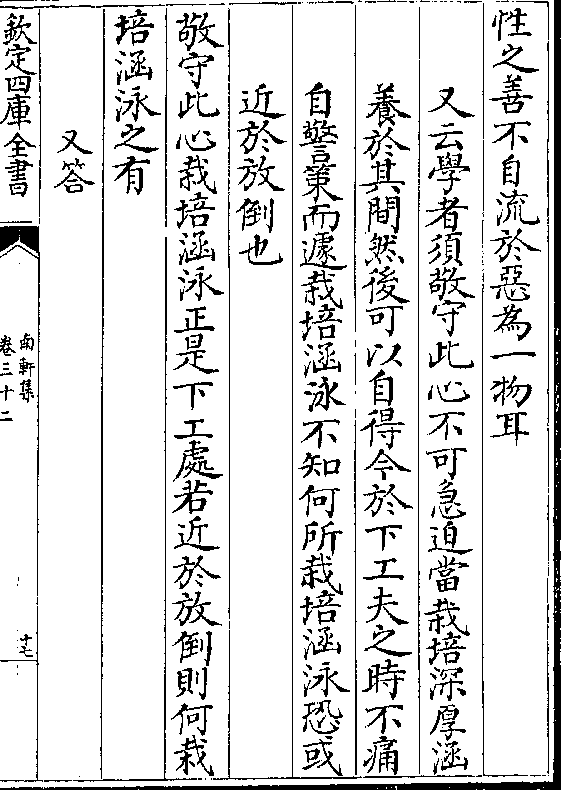 性之善不自流於惡為一物耳
又云學者須敬守此心不可急迫當栽培深厚涵
養於其間然後可以自得今於下工夫之時不痛
自警策而遽栽培涵泳不知何所栽培涵泳恐或
近於放倒也
敬守此心栽培涵泳正是下工處若近於放倒則何栽
培涵泳之有
又答
欽定四庫全書
南軒集
卷三十二
十七